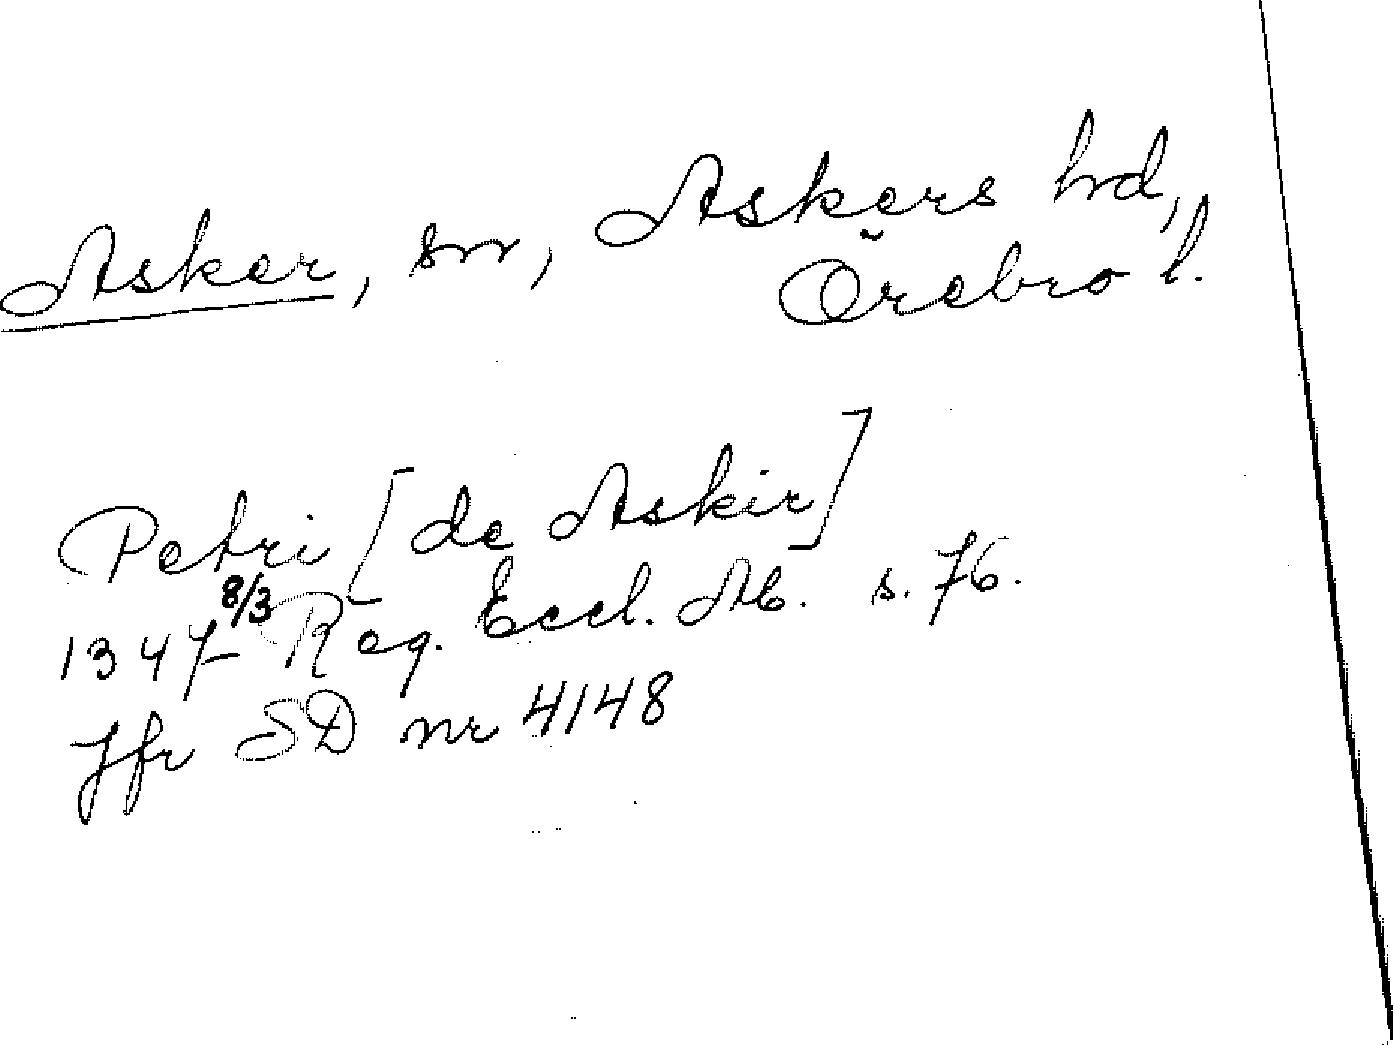 Asker, sn, Askers hrd,
Örebro l.
Petri [de Askir]
1347 8/3 Reg. Eccl. Ab. s. 76.
Jfr SD nr 4148